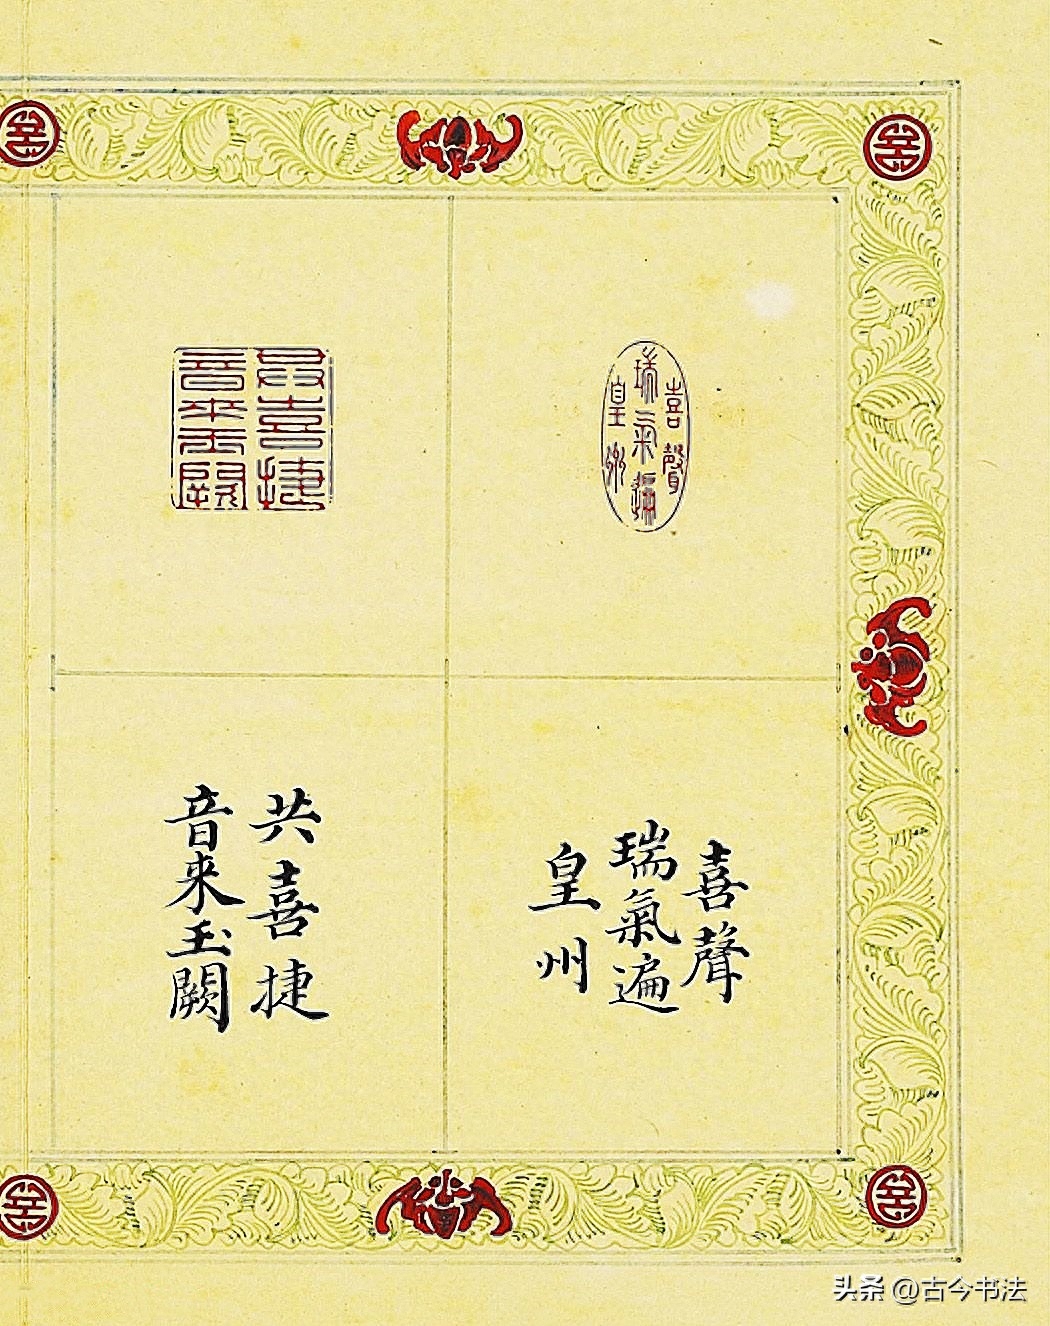 喜聲
瑞氣遍
皇州
共喜捷
音来玉闕
喜聲
瑞氣遍
皇州
共喜捷
音来玉闕
头条 @古今书法